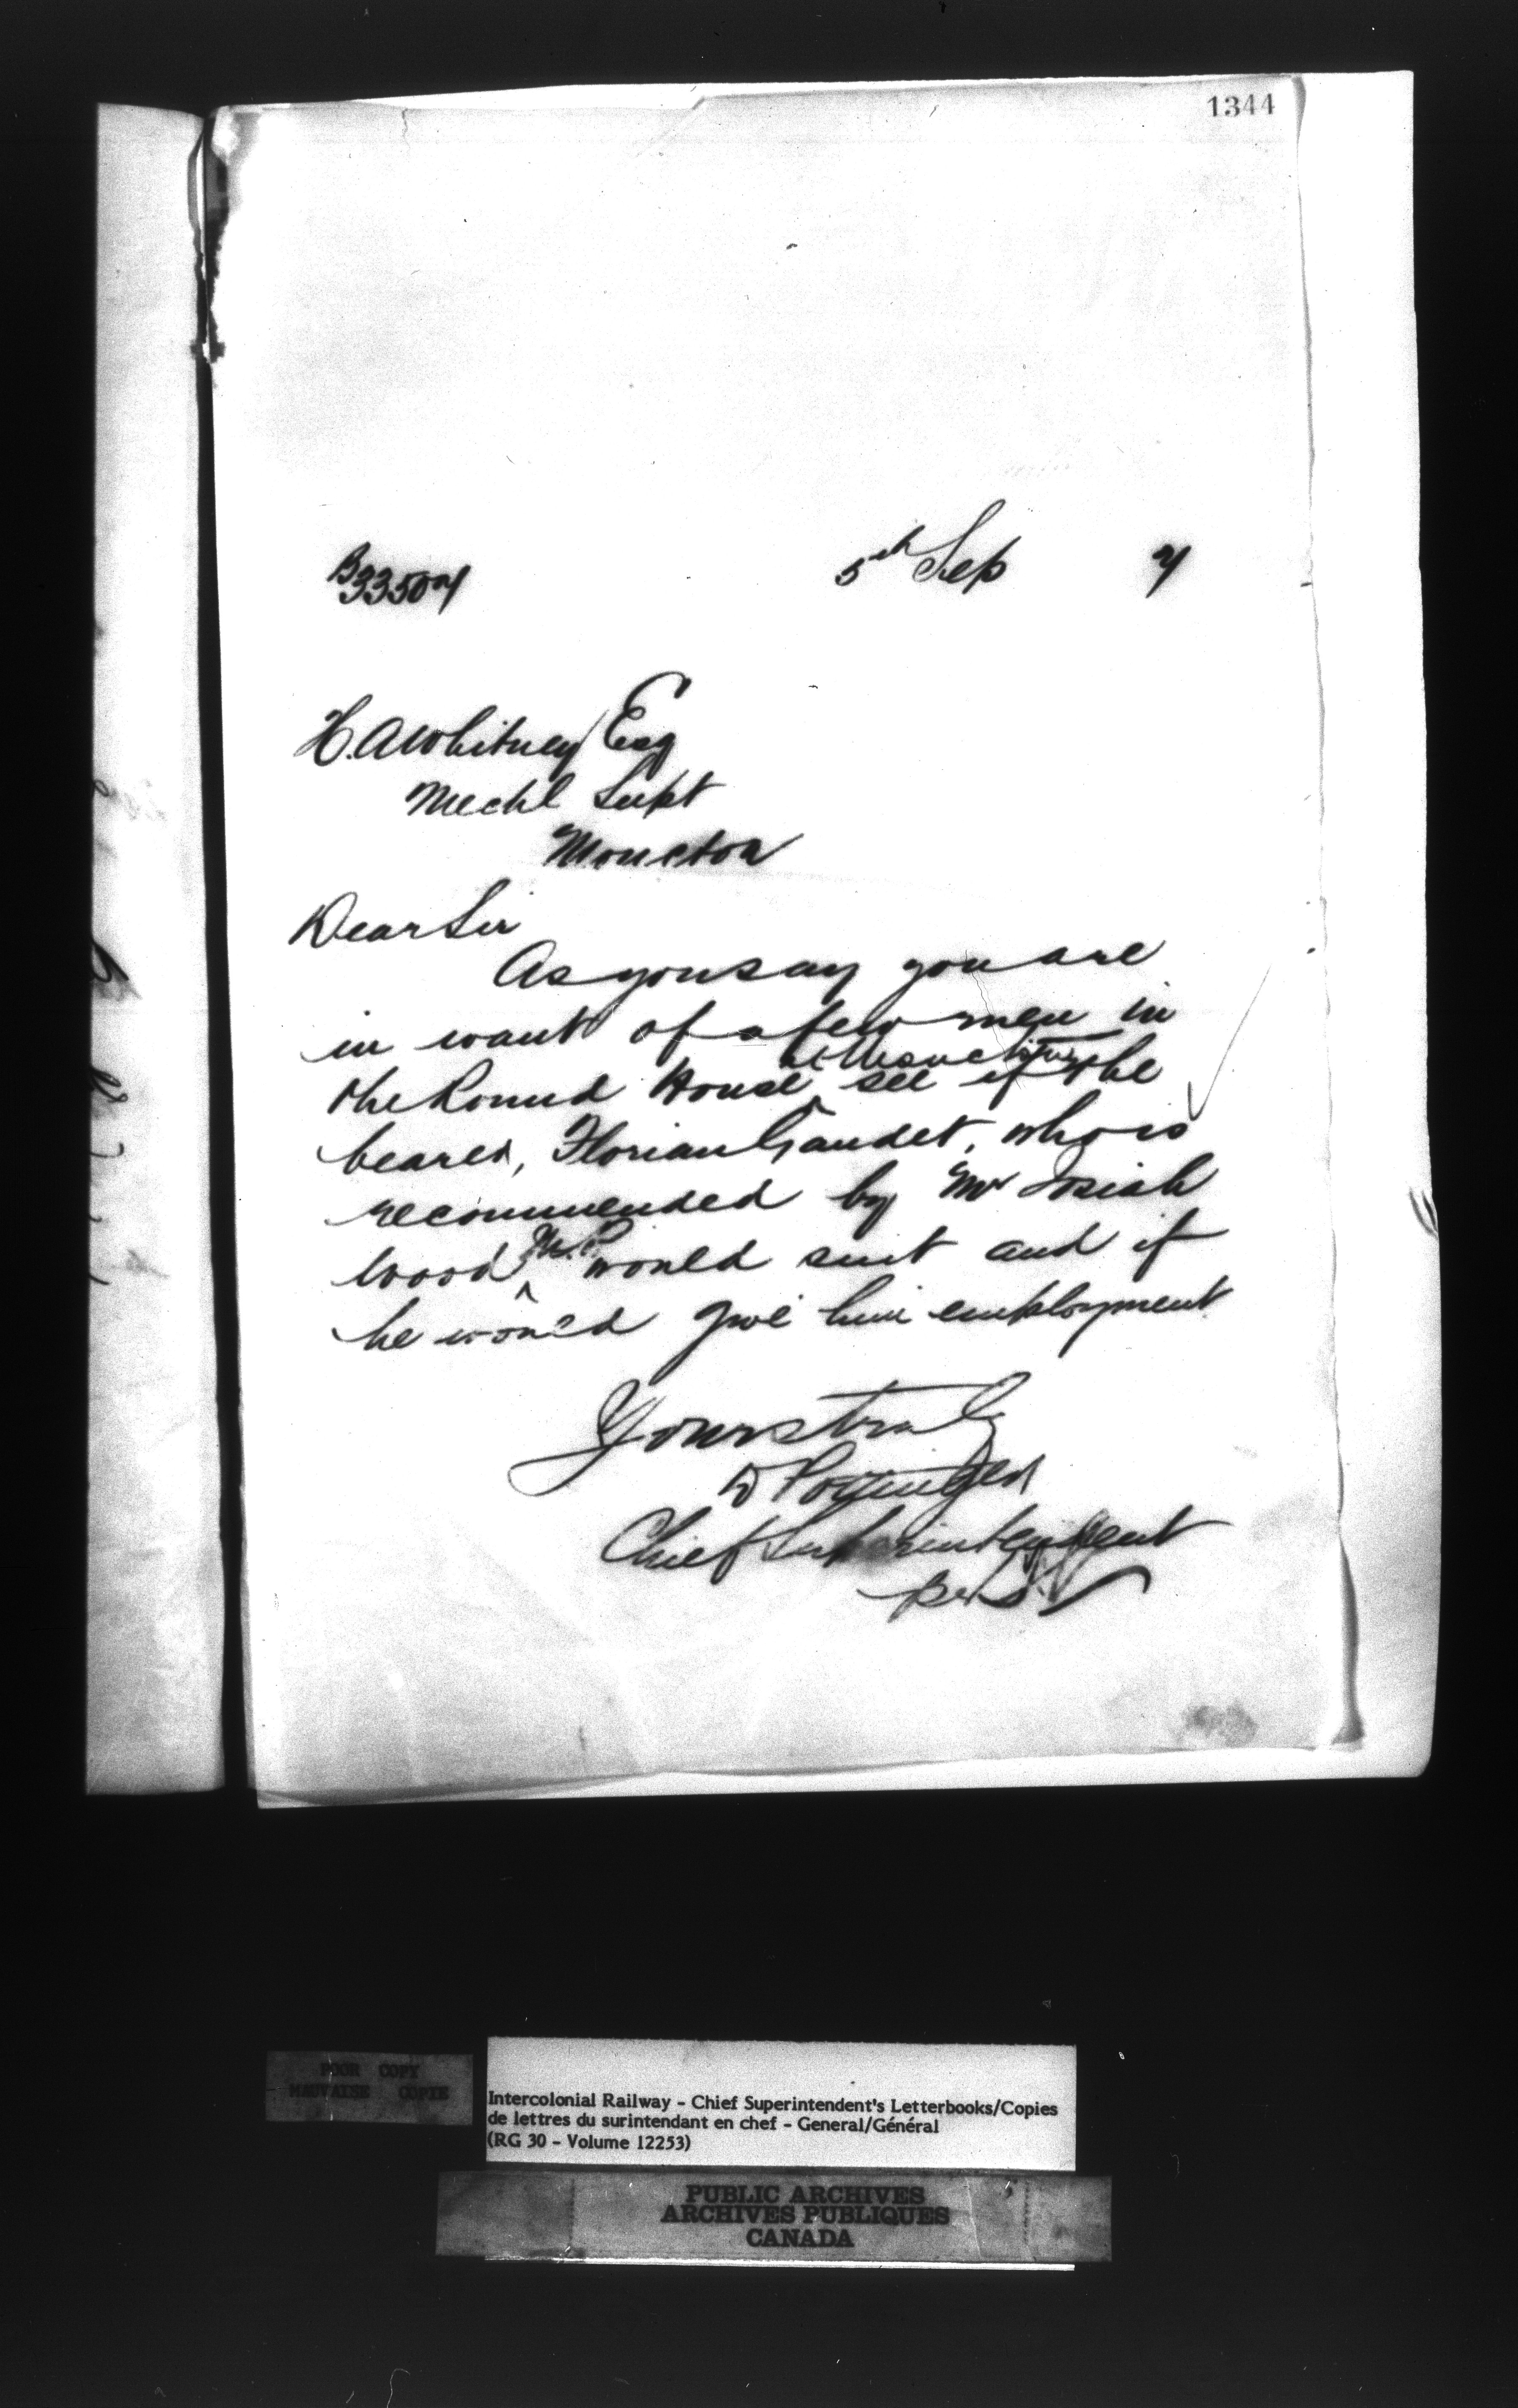 1344
B33504
5th Sep
H. A Whitney Esq
Mechl Supt
Moncton
Dear Sir
As you say you are
in want of a few men in
the Round House at Moncton see if the
bearer, Florian Gaudet, who is
recommended by Mr Josiah
Wood M.P. would suit and if
he would give him employment
Yours truly
D Pottinger
Chief Superintendent
POOR COPY
MAUVAISE COPIE
Intercolonial Railway - Chief Superintendent's Letterbooks/Copies
de lettres du surintendant en chef - General/Général
(RG 30 - Volume 12253)
PUBLIC ARCHIVES
ARCHIVES PUBLIQUES
CANADA